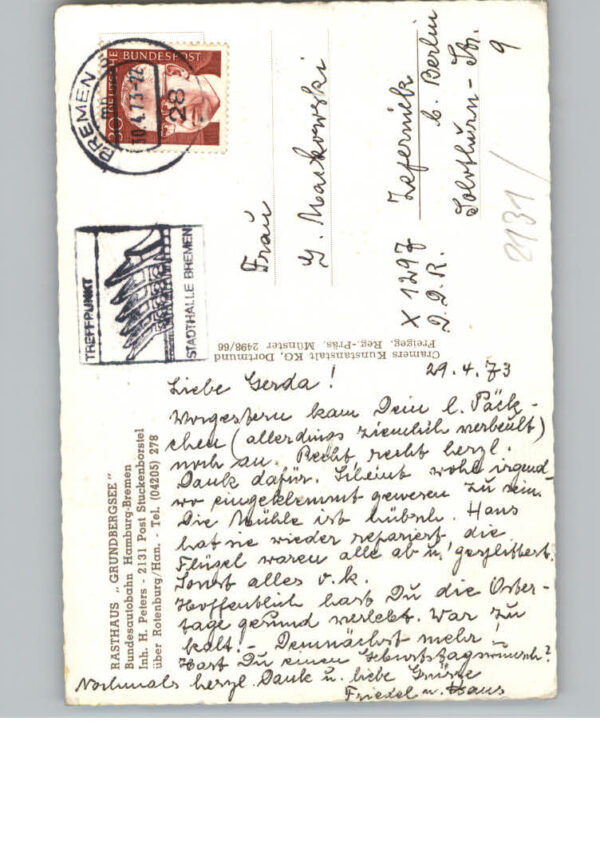 BREMEN
30.4.73-22
DEUTSCHE BUNDESPOST
30
28
TREFFPUNKT
STADTHALLE BREMEN
Frau
G. Markowski
X 1297 Zepernick
D.D.R. b. Berlin
Solothurn-Str.
9
2131/
Cramers Kunstanstalt KG, Dortmund
Freigeg. Reg.-Präs. Münster 2498/66
RASTHAUS „GRUNDBERGSEE"
Bundesautobahn Hamburg-Bremen
Inh. H. Peters - 2131 Post Stuckenborstel
über Rotenburg/Han. - Tel. (04205) 278
29.4.73
Liebe Gerda!
Vorgestern kam Dein l. Päck-
chen (allerdings ziemlich verbeult)
noch an. Recht recht herzl.
Dank dafür. Scheint wohl irgend-
wo eingeklemmt gewesen zu sein.
Die Mühle ist hübsch. Hans
hat sie wieder repariert, die
Flügel waren alle ab u. gesplittert.
Sonst alles o.k.
Hoffentlich hast Du die Oster-
tage gesund verlebt. War zu
kalt! - Demnächst mehr!
Hast Du einen Geburtstagswunsch?
Nochmals herzl. Dank u. liebe Grüsse
Friedel u. Hans